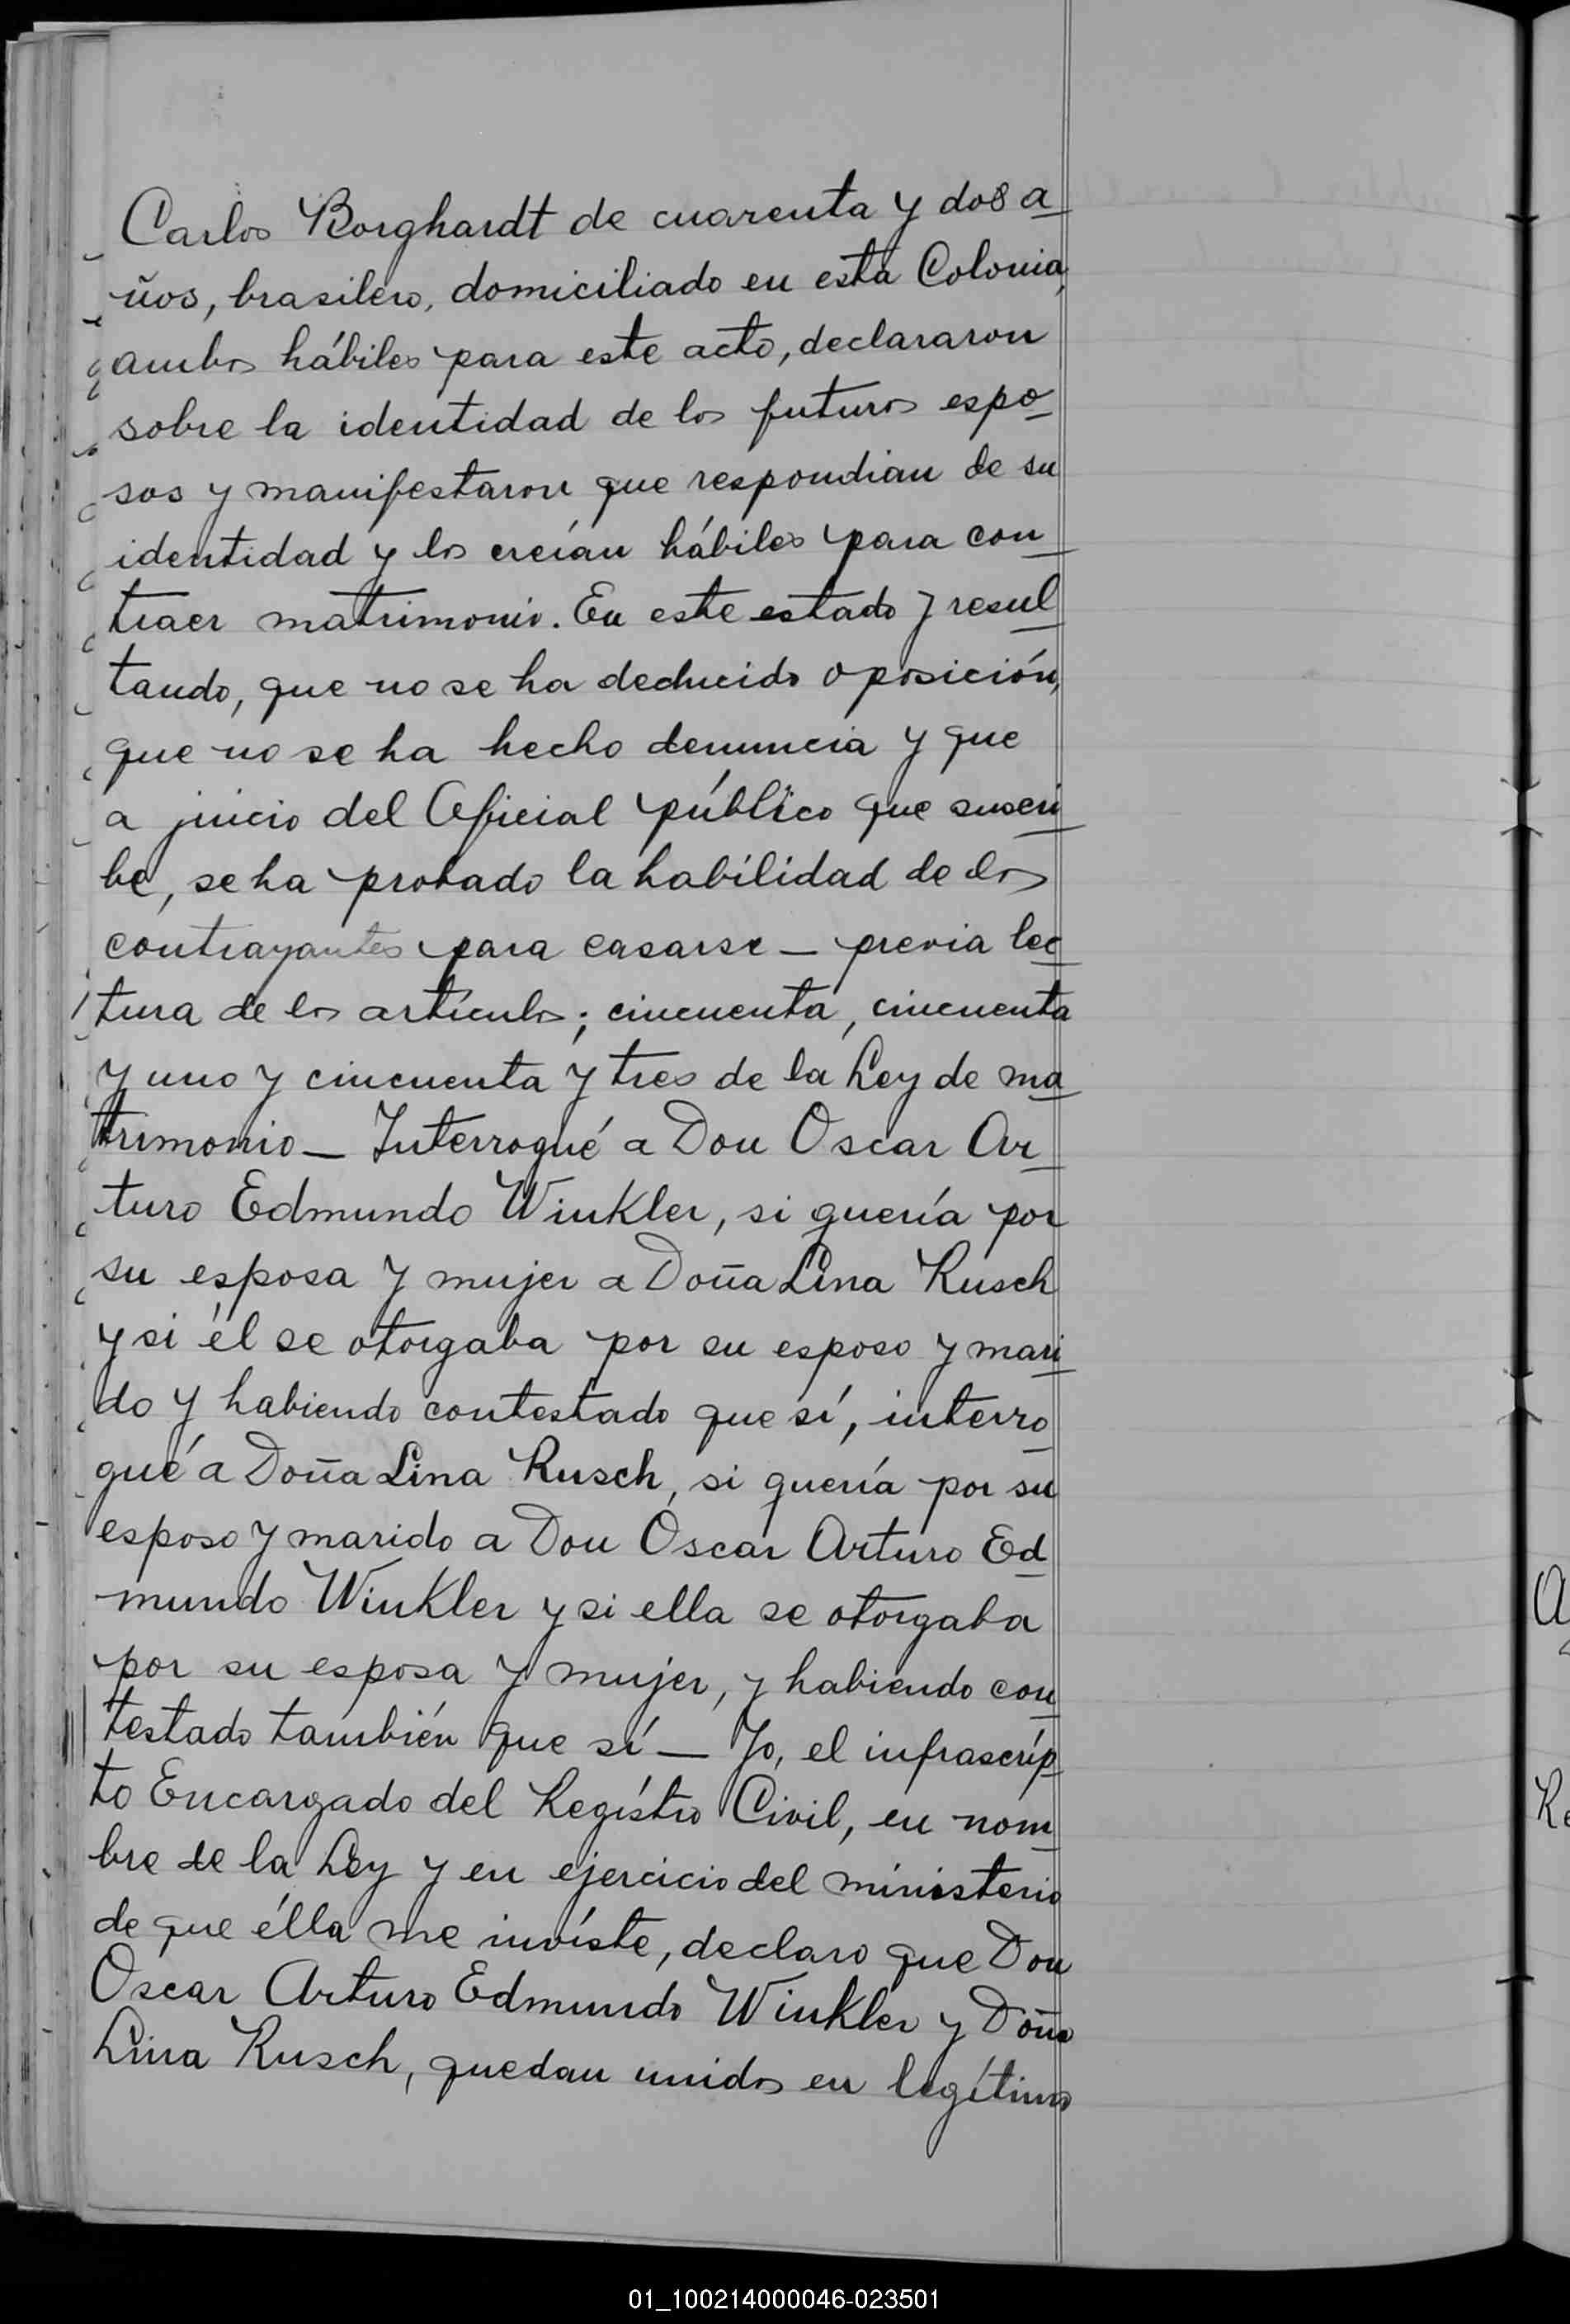 Carlos Borghardt de cuarenta y dos a
ños, brasilero, domiciliado en esta Colonia,
ambos hábiles para este acto, declararon
sobre la identidad de los futuros espo
sos y manifestaron que respondian de su
identidad y los creían hábiles para con
traer matrimonio. En este estado y resul
tando, que no se ha deducido oposición,
que no se ha hecho denuncia y que
a juicio del Oficial público que suscri
be, se ha probado la habilidad de los
contrayantes para casarse — previa lec
tura de los artículos; cincuenta, cincuenta
y uno y cincuenta y tres de la Ley de ma
trimonio — Interrogué a Don Oscar Ar
turo Edmundo Winkler, si quería por
su esposa y mujer a Doña Lina Rusch
y si él se otorgaba por su esposo y mari
do y habiendo contestado que sí, interro
gué a Doña Lina Rusch, si quería por su
esposo y marido a Don Oscar Arturo Ed
mundo Winkler y si ella se otorgaba
por su esposa y mujer, y habiendo con
testado también que sí — Yo, el infrascríp
to Encargado del Regístro Civil, en nom
bre de la Ley y en ejercicio del ministerio
de que élla me invíste, declaro que Don
Oscar Arturo Edmundo Winkler y Doña
Lina Rusch, quedan unidos en legítimo
01_100214000046-023501